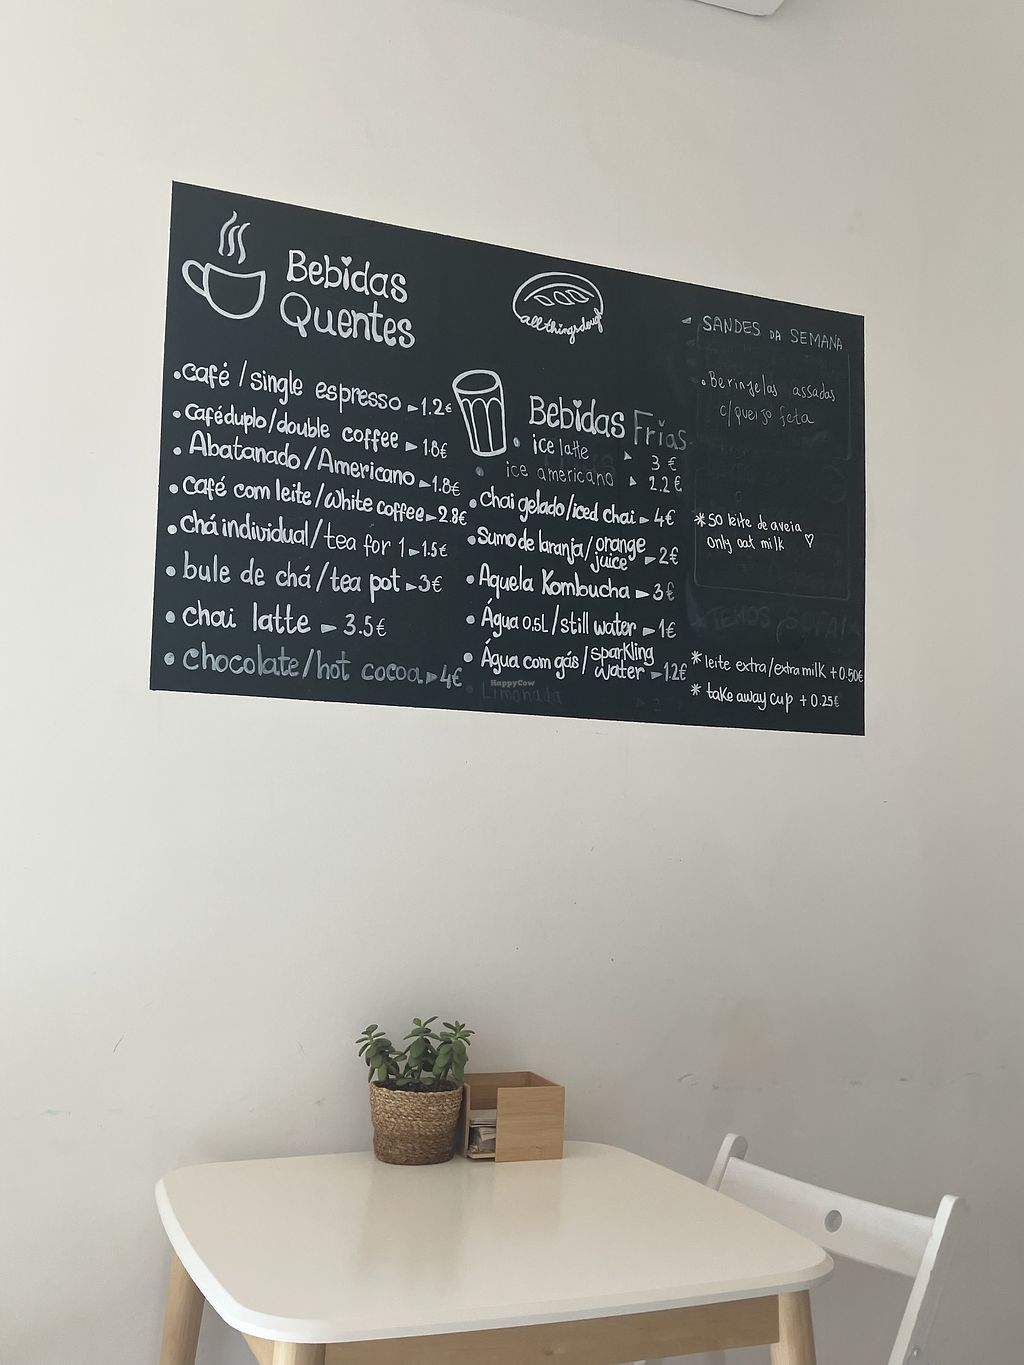 Bebidas
Quentes
• café / single espresso ► 1.2€
• café duplo / double coffee ► 1.8€
• Abatanado / Americano ► 1.8€
• café com leite / white coffee ► 2.8€
• chá individual / tea for 1 ► 1.5€
• bule de chá / tea pot ► 3€
• chai latte ► 3.5€
• chocolate / hot cocoa ► 4€
allthingsdough
Bebidas Frias
• ice latte ► 3 €
• ice americano ► 2.2 €
• chai gelado / iced chai ► 4€
• sumo de laranja / orange juice ► 2€
• Aquela Kombucha ► 3€
• Água 0.5L / still water ► 1€
• Água com gás / sparkling water ► 1.2€
Limonada
HappyCow
SANDES DA SEMANA
• Beringelas assadas
c/queijo feta
* só leite de aveia
only oat milk ♡
TEMOS SOPA!
* leite extra / extra milk + 0.50€
* take away cup + 0.25€